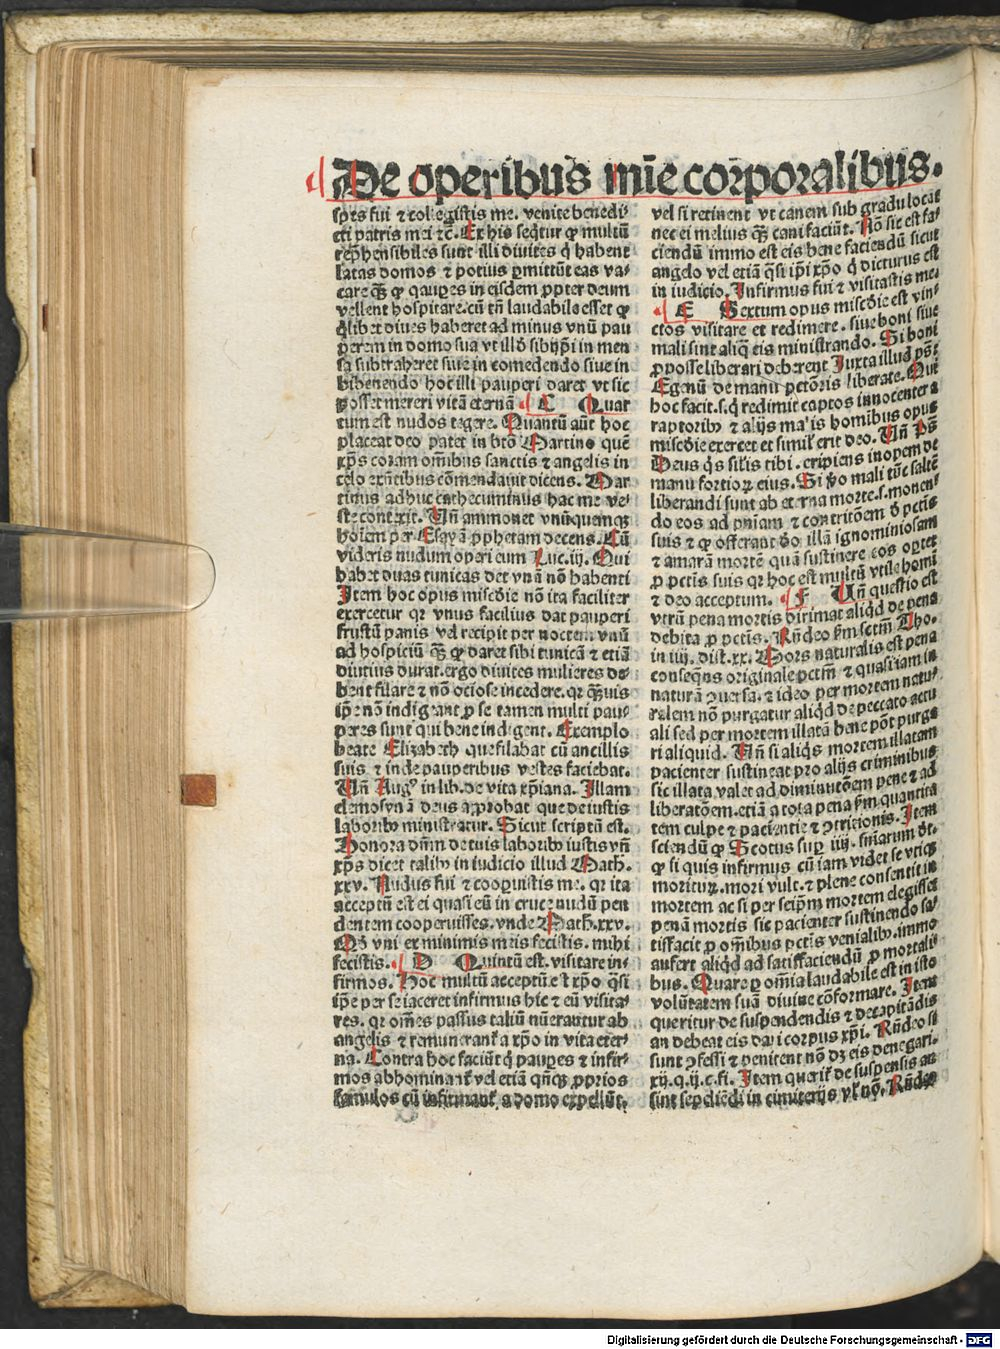 De operibus mīe corporalibus.
spes fui ⁊ collegistis me. venite benedi-
cti patris mei ⁊c̄. Ex his seq̄tur ꝙ multū
rep̄hensibiles sunt illi diuites q̄ habent
latas domos ⁊ potius ꝑmittūt eas va-
care q̄ꝫ ꝙ pauꝑes in eisdem ꝓpter deum
vellent hospitare. cū tn̄ laudabile esset ꝙ
q̄libet diues haberet ad minus vnū pau
ꝑerem in domo sua vt illō sibijp̄i in men
sa subtraheret siue in comedendo siue in
bibenendo hoc illi pauperi daret vt sic
posset mereri vitā eternā C Quar
tum est nudos tegere. Quantū aūt hoc
placeat deo patet in btō Martino quē
xp̄s coram om̄ibus sanctis ⁊ angelis in
celo exn̄tibus cōmendauit dicens. Mar
tinus adhuc cathecuminus hac me ve-
ste contexit. Un̄ ammonet vnūquemqꝫ
hoīem per Esayā ꝓphetam decens. Cū
videris nudum operi eum Luc. iij. Qui
habet duas tunicas det vnā nō habenti
Item hoc opus mīscdie nō ita faciliter
exercetur qr vnus facilius dat pauperi
frustū panis vel recipit per noctem vnū
ad hospiciū q̄ꝫ ꝙ daret sibi tunicā ⁊ etiā
diutius durat. ergo diuites mulieres de-
bent filare ⁊ nō ociose incedere. qr q̄ꝫuis
ip̄e nō indigeant ꝓ se tamen multi pau-
peres sunt qui bene indigent. Exemplo
beate Elizabeth que filabat cū ancillis
suis ⁊ inde pauperibus vestes faciebat.
Un̄ Augꝰ in lib. de vita xp̄iana. Illam
elemosynā deus approbat que de iustis
laboribꝰ ministratur. Sicut scriptū est.
Honora dn̄m de tuis laboribꝰ iustis vn̄
xp̄s dicet talibꝰ in iudicio illud Math.
xxv. Nudus fui ⁊ cooꝑuistis me. qr ita
acceptū est ei quasi eū in cruce nudū pen
dentem cooperuisses. vnde Math. xxv.
Qd̄ vni ex minimis meis fecistis. mihi
fecistis. D Quintū est. visitare in-
firmos. Hoc multū acceptū est xp̄o q̄si
ip̄e per se iaceret infirmus hic ⁊ eū visita-
res. qr om̄es passus taliū nūerantur ab
angelis ⁊ remunerant̄ a xp̄o in vita eter-
na. Contra hoc faciūt q̄ pauꝑes ⁊ infir-
mos abhominant̄ vel etiā qn̄qꝫ ꝓprios
famulos cū infirmant̄ a domo expellūt.
vel si retinent vt canem sub gradu locāt
nec ei melius q̄ꝫ cani faciūt. Nō sic est fa-
ciendū immo est eis bene faciendū sicut
angelo vel etiā q̄si ip̄i xp̄o q̄ dicturus est
in iudicio. Infirmus fui ⁊ visitastis me.
E Sextum opus mīscdie est vin-
ctos visitare et redimere. siue boni siue
mali sint aliq̄ eis ministrando. Si boni
ꝓ posse liberari deberent Iuxta illud ps̄.
Egenū de manu pctōris liberate. Qui
hoc facit. s. q̄ redimit captos innocenter a
raptoribꝰ ⁊ alijs malis hominibus opus
mīscdie exercet et simil̄ erit deo. Un̄ Ps̄.
Deus q̄s sil̄is tibi. eripiens inopem de
manu fortioꝝ eius. Si v̄o mali tūc saltē
liberandi sunt ab eterna morte. s. monen-
do eos ad pn̄iam ⁊ contritōem d̄ pctīs
suis ⁊ ꝙ offerant deo illā ignominiosam
⁊ amarā mortē quā sustinere eos oꝑtet
ꝓ pctīs suis qr hoc est multū vtile homī
⁊ deo acceptum. F Un̄ questio est
vtrū pena mortis dirimat aliqd̄ de pena
debita ꝓ pctīs. Rn̄deo ẜm sctm̄ Tho.
in iiij. dist. xx. Mors naturalis est pena
conseq̄ns originale pctm̄ ⁊ quasi iam in
naturā ꝯuersa. ⁊ ideo per mortem natu-
ralem nō purgatur aliqd̄ de peccato actu
ali sed per mortem illatā bene pōt purga
ri aliquid. Un̄ si aliqs̄ mortem illatam
pacienter sustineat pro alijs criminibus
sic illata valet ad diminutōem pene ⁊ ad
liberatōem. etiā a tota pena ẜm quantita
tem culpe ⁊ pacientie ⁊ ꝯtricionis. Item
sciendū ꝙ Scotus suꝑ iiij. sn̄iarum dt̄.
ꝙ si quis infirmus cū iam videt se vtiqꝫ
moriturꝝ. mori vult. ⁊ plene consentit in
mortem ac si per seip̄m mortem elegisset
penā mortis sic pacienter sustinendo sa-
tisfacit ꝓ om̄ibus pctīs venialibꝰ. immo
aufert aliqd̄ ad satisfaciendū ꝓ mortali
bus. Quare ꝑ omia laudabile est in isto
volūtatem suā diuine cōformare. Item
queritur de suspendendis ⁊ decapitādis
an debeat eis dari corpus xp̄i. Rn̄deo si
sunt ꝯfessi ⁊ penitent nō dꝫ eis denegari.
xij. q. ij. c. fi. Item querit̄ de suspensis an
sint sepeliēdi in cimiterijs vl̄ nō. Rn̄deo
Digitalisierung gefördert durch die Deutsche Forschungsgemeinschaft - DFG